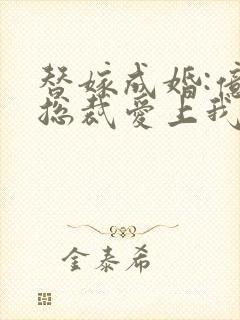 替嫁成婚:
总裁爱上我
金泰希